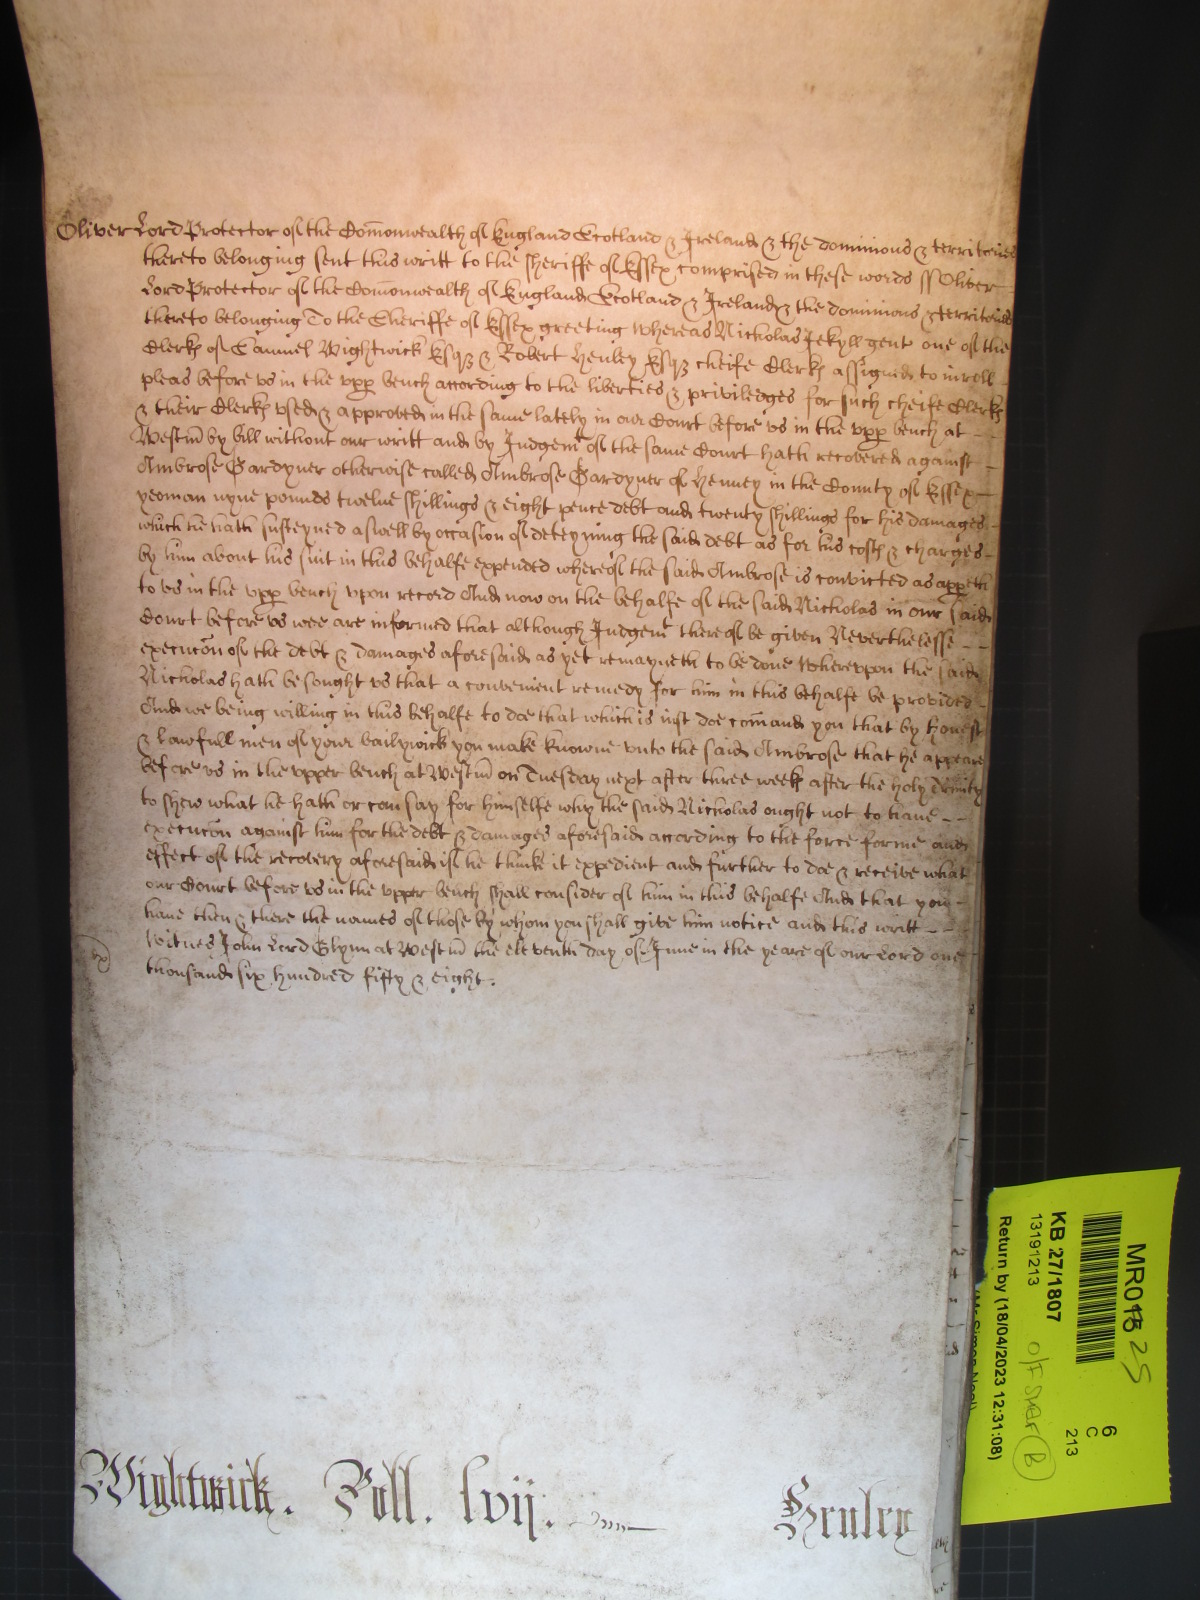 Oliver Lord Protector of the Com̄onwealth of England Scotland & Ireland & the dominions & territories
thereto belonging sent this writt to the sheriffe of Essex comprised in these words ss Oliver
Lord Protector of the Com̄onwealth of England Scotland & Ireland & the dominions & territories
thereto belonging To the Sheriffe of Essex greeting Whereas Nicholas Jekyll gent one of the
Clerks of Samuel Wightwick Esqz & Robert Henley Esqz cheife Clerks assigned to inroll
pleas before vs in the vpp bench according to the liberties & priviledges for such cheife Clerks
& their Clerks vsed & approved in the same lately in our Court before vs in the vpp bench at
Westm̄ by bill without our writt and by Judgemt of the same Court hath recovered against
Ambrose Gardyner otherwise called Ambrose Gardyner of Henney in the County of Essex
yeoman nyne pounds twelve shillings & eight pence debt and twenty shillings for his damages
which he hath susteyned aswell by occasion of deteyning the said debt as for his costs & charges
by him about his suit in this behalfe expended whereof the said Ambrose is convicted as appeth
to vs in the vpp bench vpon record And now on the behalfe of the said Nicholas in our said
Court before vs wee are informed that although Judgemt thereof be given Neverthelesse
execuc̄on of the debt & damages aforesaid as yet remayneth to be done Wherevpon the said
Nicholas hath besought vs that a convenient remedy for him in this behalfe be provided
And we being willing in this behalfe to doe that which is iust doe com̄and you that by honest
& lawfull men of your bailywick you make knowne vnto the said Ambrose that he appeare
before vs in the vpper bench at Westm̄ on Tuesday next after three weeks after the holy Trinity
to shew what he hath or can say for himselfe why the said Nicholas ought not to have
execuc̄on against him for the debt & damages aforesaid according to the force forme and
effect of the recovery aforesaid if he thinke it expedient and further to doe & receive what
our Court before vs in the vpper bench shall consider of him in this behalfe And that you
have then & there the names of those by whom you shall give him notice and this writt
Witnes John Lord Glynn at Westm̄ the eleventh day of June in the yeare of our Lord one
thousand six hundred fifty & eight.
Wightwick. Roll. lvij. Henley
MR018 25
6
C
213
KB 27/1807
13191213
O/F Shelf B
Return by (18/04/2023 12:31:08)